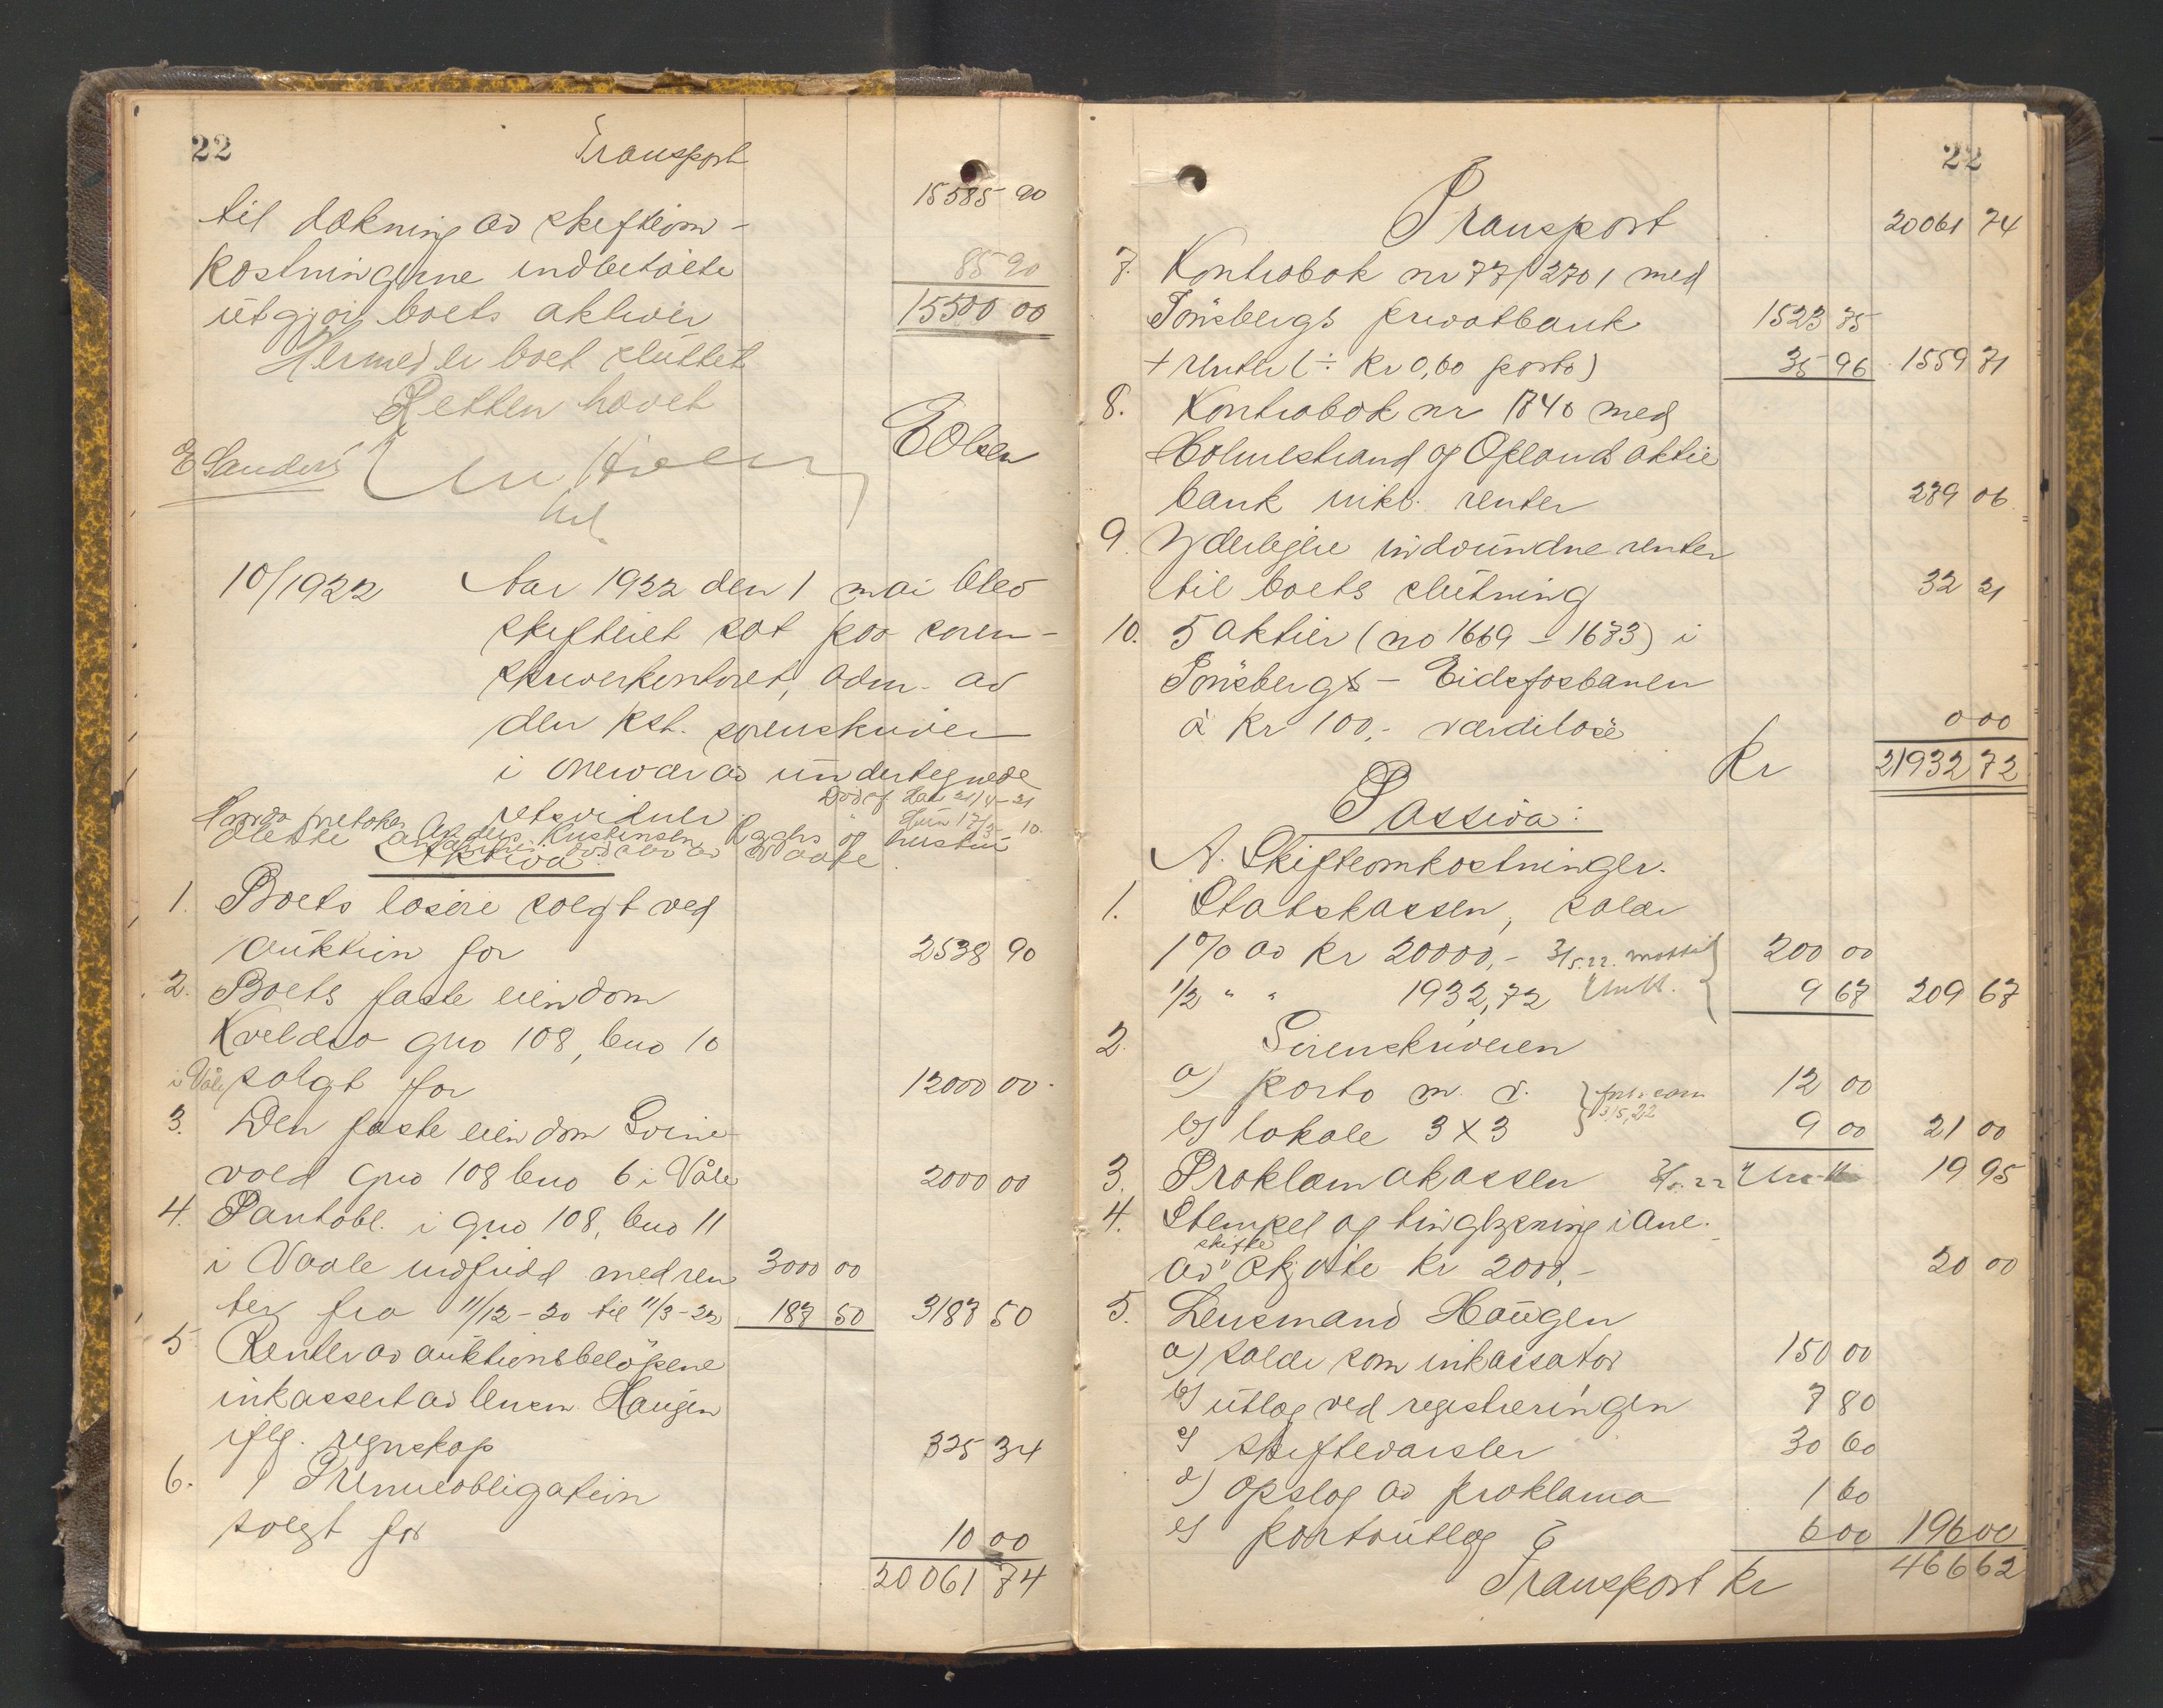 22
Transport
15585 90
til dækning av skifteom-
kostningerne indbetalte
85 90
utgjør boets aktiver
15500 00
Hermed er boet sluttet
Retten hævet
E Olsen
E Sanders
10/1922 Aar 1922 den 1 mai blev
skifteret sat paa soren-
skriverkontoret, adm. av
den kst. sorenskriver
i nærvær av undertegnede
retsvidner
Død f. Han 21/4-21
Hun 17/3-10.
Anders Kristensen og hustru
Aktiva:
1. Boets løsøre solgt ved
auktion for 2538 90
2. Boets faste eiendom
gno 108, bno 10
i Våle solgt for 12000 00
3. Den faste eiendom
vold gno 108 bno 6 i Våle 2000 00
4. Pantobl. i gno 108, bno 11
i Vaale indfridd med ren 3000 00
ter fra 11/12-20 til 11/3-22 187 50 3187 50
5 Renter av auktionsbeløpene
inkassert av lensm. Haugen
iflg. regnskap 325 34
6. 1 Præmieobligation
solgt for 10 00
20061 74
22
Transport 20061 74
7. Kontrabok nr 77/2701 med
Tönsbergs privatbank 1523 75
+ renter (÷ kr 0,60 porto) 35 96 1559 71
8. Kontrabok nr 1840 med
Holmestrand og Oplands aktie
bank inkl. renter 279 06
9. Yderligere indvundne renter
til boets slutning 32 21
10. 5 aktier (no 1669 - 1673) i
Tönsberg - Eidsfosbanen
à kr 100,- værdiløse 0 00
Kr 21932 72
Passiva:
A. Skifteomkostninger.
1. Statskassen, salær
1 % av kr 20000,- 3/5.22. mottat 200 00
1/2 " " 1932,72 9 67 209 67
2. Sorenskriveren
a) porto m. v. 12 00
b) lokale 3 x 3 3/5,22 9 00 21 00
3. Proklamakassen 3/5.22 19 95
4. Stempel og tinglysning i anl.
av skifteskjøte kr 2000,- 20 00
5. Lensmand Haugen
a) salær som inkassator 150 00
b) utlæg ved registreringen 7 80
c) skiftevarsler 30 60
d) opslag av proklama 1 60
e) portoutlæg 6 00 196 00
Transport kr 466 62